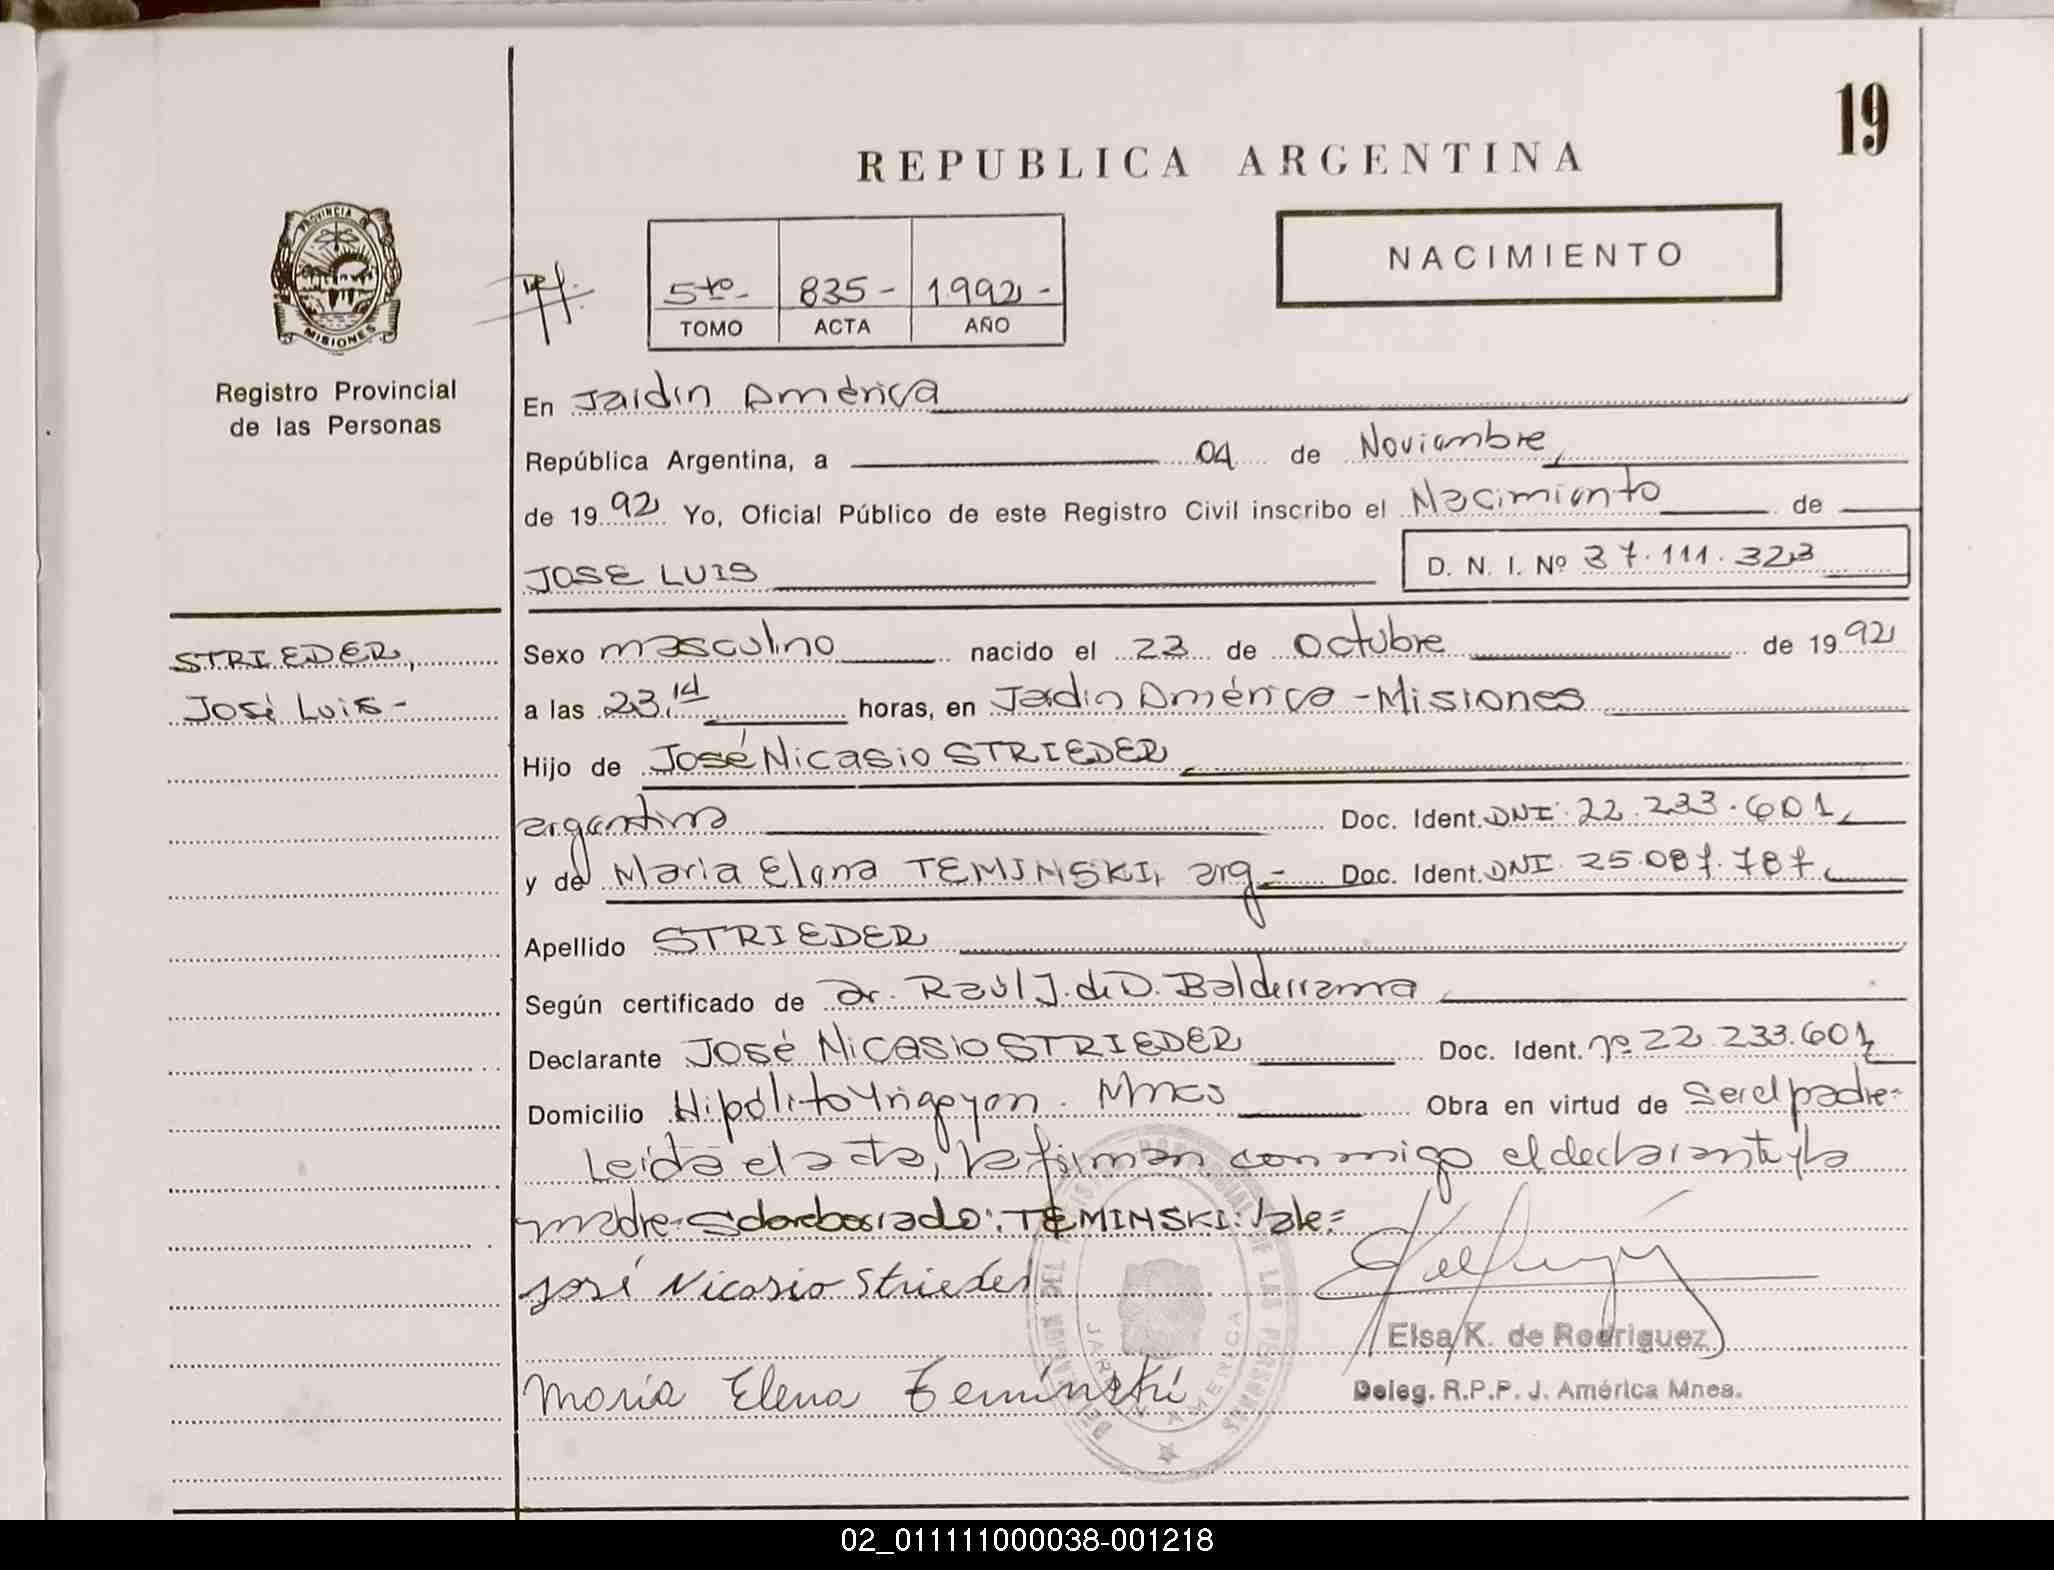 19
REPUBLICA ARGENTINA
PROVINCIA DE
MISIONES
Registro Provincial
de las Personas
5to- 835- 1992-
TOMO ACTA AÑO
NACIMIENTO
En Jardín América
República Argentina, a 04 de Noviembre,
de 1992 Yo, Oficial Público de este Registro Civil inscribo el Nacimiento de
JOSE LUIS D. N. I. Nº 37.111.323
STRIEDER,
José Luis-
Sexo masculino nacido el 23 de octubre de 1992
a las 23,14 horas, en Jardín América - Misiones
Hijo de José Nicasio STRIEDER
argentina Doc. Ident. DNI: 22.233.601,
y de María Elena TEMINSKI, arg.- Doc. Ident. DNI. 25.087.787,
Apellido STRIEDER
Según certificado de Dr. Raúl J. de D. Balderrama
Declarante José Nicasio STRIEDER Doc. Ident. nº 22.233.601,
Domicilio Hipólito Yrigoyen. Mnes Obra en virtud de ser el padre-
Leída el acta, la firman conmigo el declarante y la
madre- Sobreborrado: TEMINSKI: Vale:
José Nicasio Strieder
María Elena Teminski
Elsa K. de Rodriguez
Deleg. R.P.P. J. América Mnes.
02_011111000038-001218